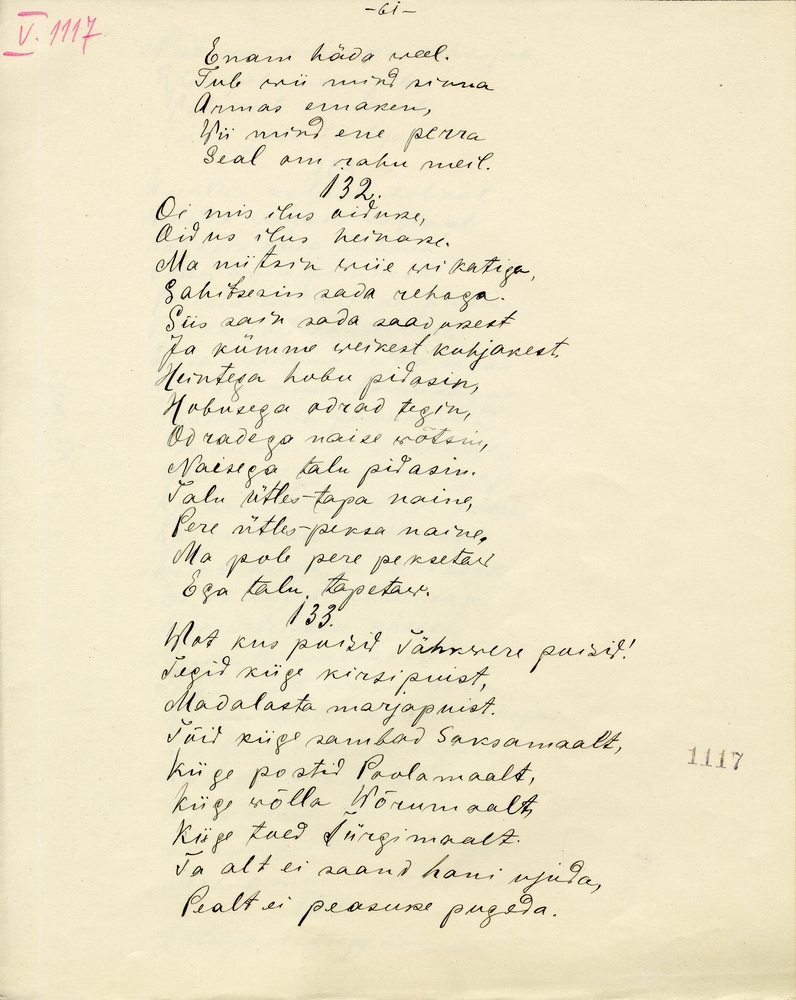 -61-
V. 1117
Enam häda weel.
Tule wii mind sinna
Armas emaken,
Wii mind ene perra
Seal om rahu meil.
132.
Oi mis ilus aiduke,
Oidus ilus heinake.
Ma niitsin wiie wikatiga,
Sahitsesin sada rehaga.
Siis sain sada saadukest
Ja kümme weikest kuhjakest.
Heintega hobu pidasin,
Hobusega odrad tegin,
Odradega naise wõtsin,
Naisega talu pidasin.
Talu ütles-tapa naine,
Pere ütles-peksa naine,
Ma pole pere peksetaw
Ega talu tapetaw.
133.
Wot kus poisid Tähkwere poisid!
Tegid kiige kirsipuist,
Madalasta marjapuist.
Tõid kiige sambad Saksamaalt,
Kiige postid Poolamaalt,
Kiige wõlla Wõrumaalt,
Kiige toed Türgimaalt.
Ta alt ei saand hani ujuda,
Pealt ei peasuke pugeda.
1117